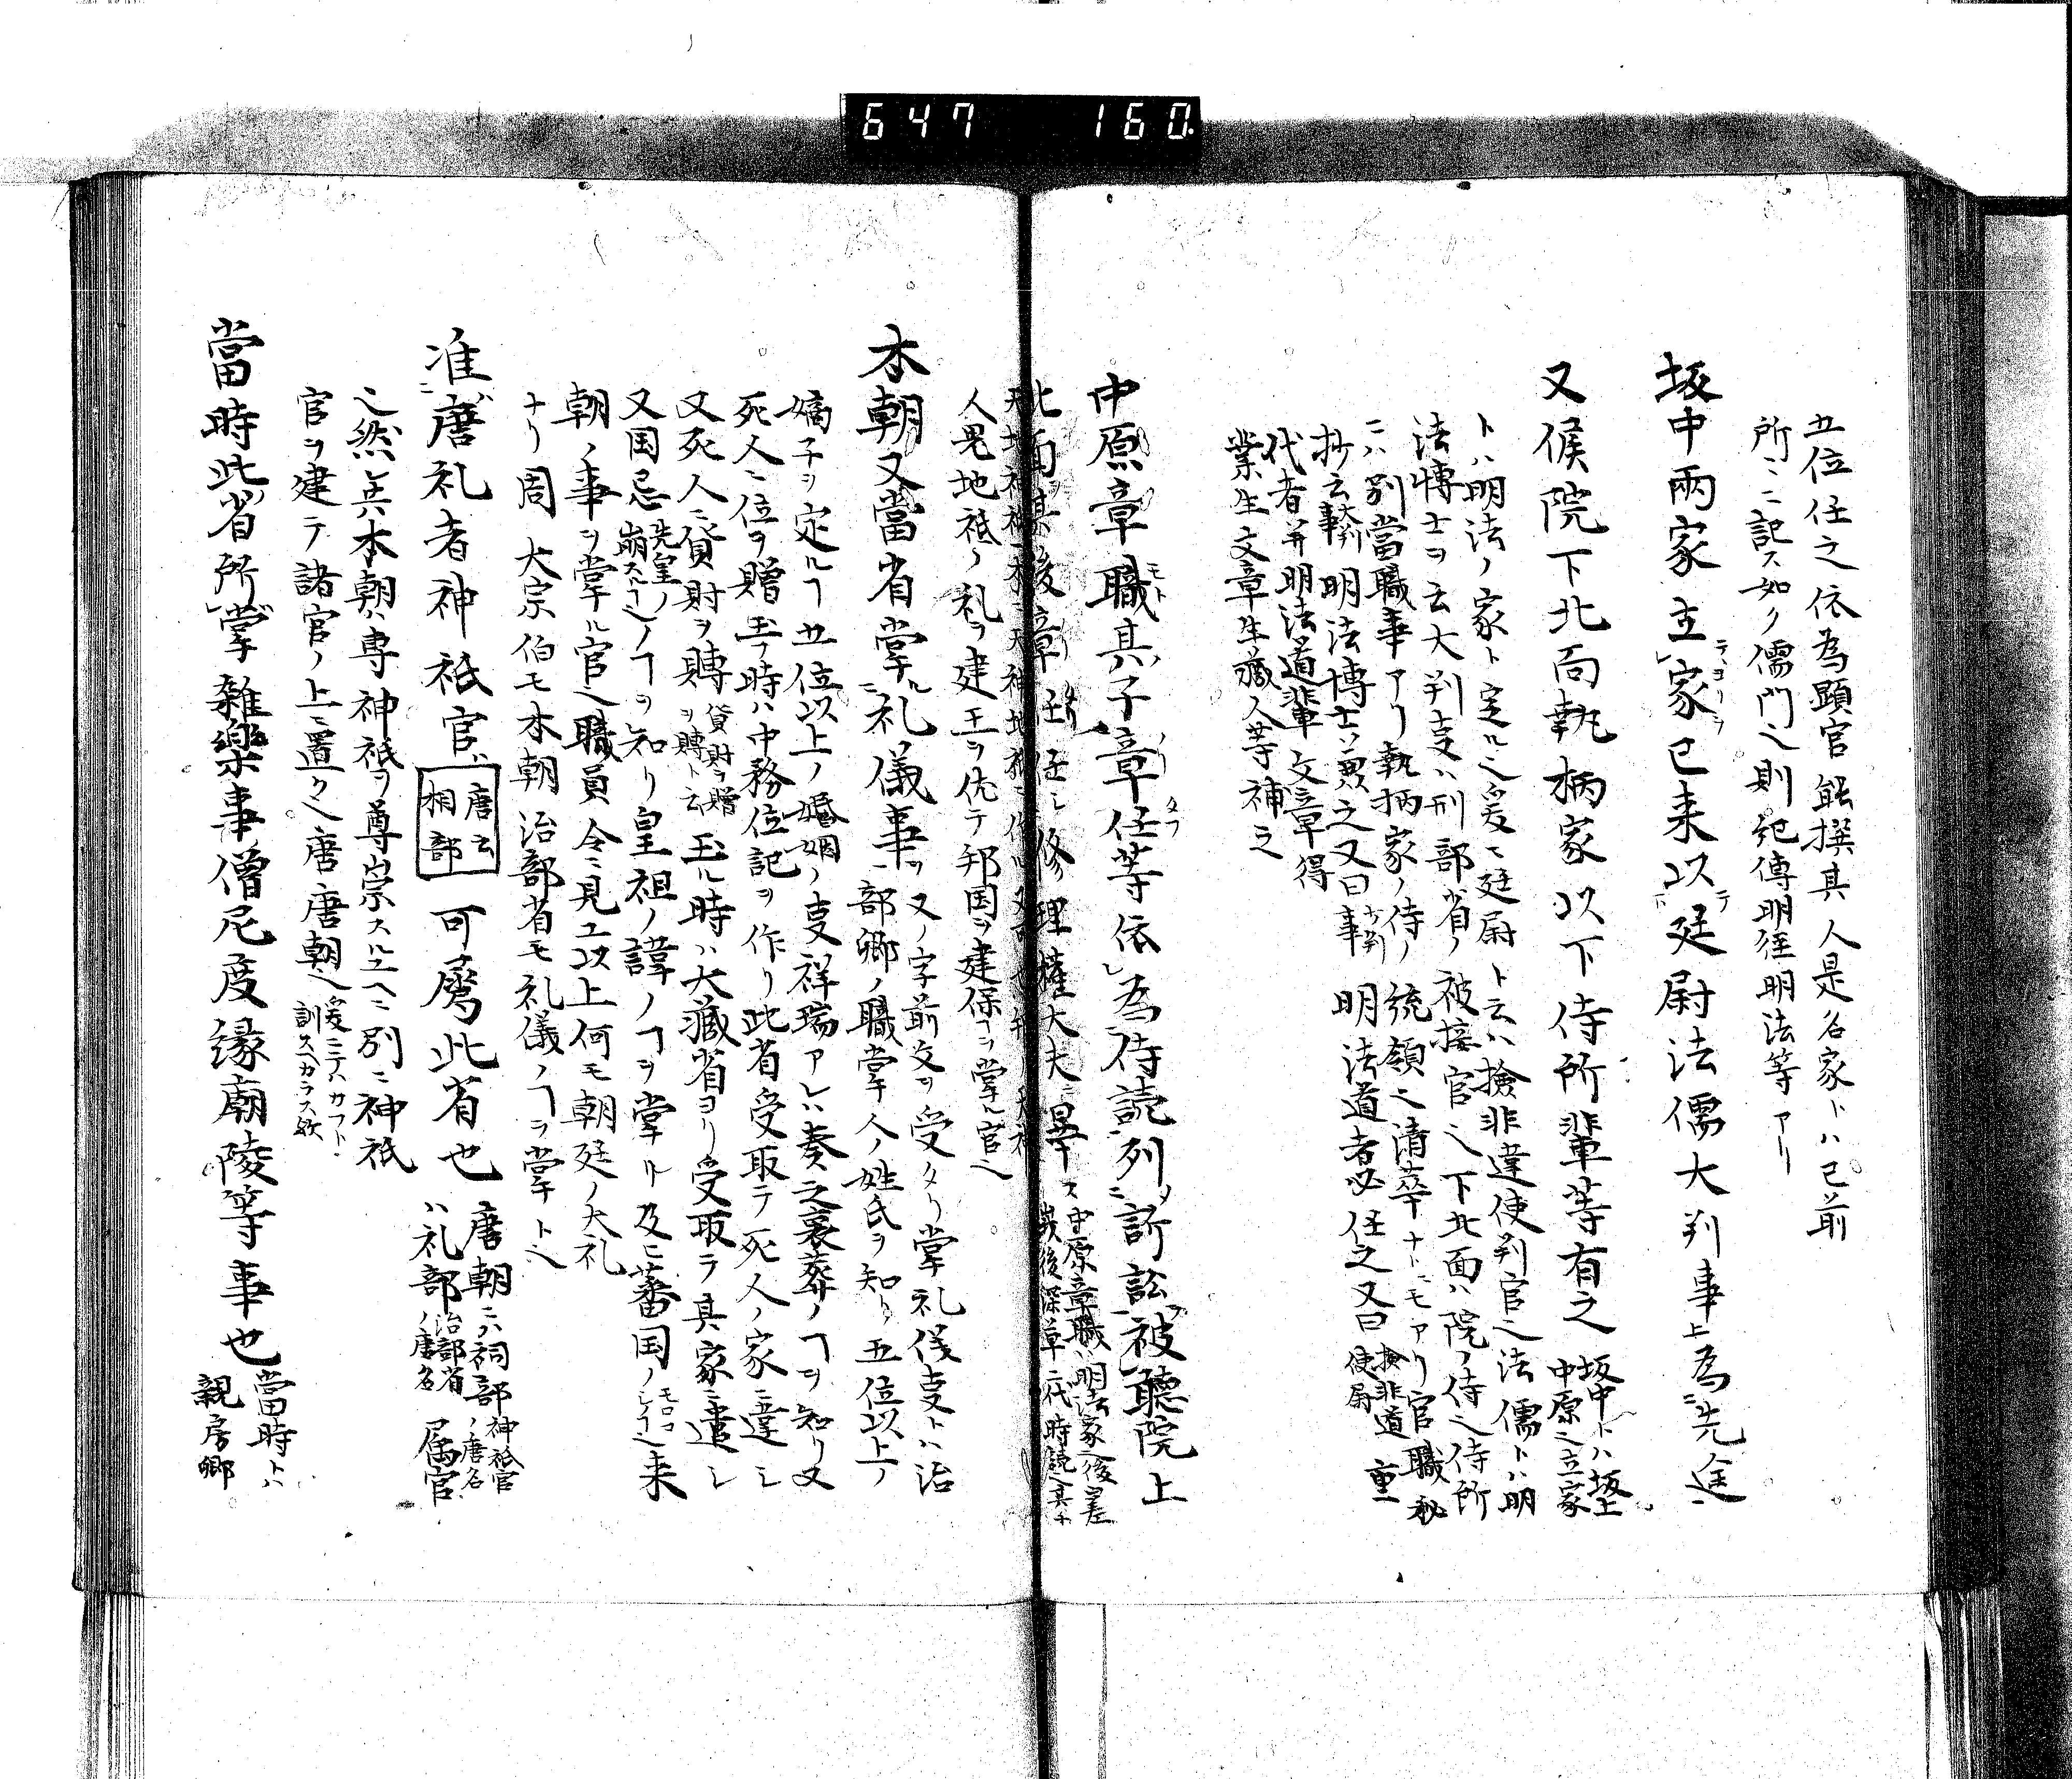 647 160
五位任之依為顕官能撰其人是名家トハ已前
所ニ記ス如ノ儒門之則紀傳明経明法等アリ
坂中兩家主家已来以廷尉法儒大判事上為先途
又候院下北面執柄家以下侍所輩等有之 坂中トハ坂上
中原之立家
トハ明法ノ家ト定ル之爰ニ廷尉ト云ハ撿非違使判官之法儒トハ明
法博士ヲ云大判事ハ刑部省ノ被接官之下北面ハ院ノ侍之侍所
ニハ別當職事アリ執柄家ノ侍ノ統領之清華ナトニモアリ官職秘
抄云大判事明法博士兼之又曰 事明法道者必任之又曰 撿非道使尉 重
代者并明法道輩文章得
業生文章生蔵人等補之
中原章職其子章任等依為侍読列訴訟被聴院上
北面 後 章任任修理権大夫畢 中原章職ハ明法家之
後深草二代
人鬼地祇ノ礼ヲ建王ヲ佐テ邦国ヲ建保ヲ掌ル官之
本朝又當省掌礼儀事ヲ又ノ字前文ヲ受タリ掌礼儀事トハ治
部卿ノ職掌人ノ姓氏ヲ知リ五位以上ノ
嫡子ヲ定ルヿ五位以上ノ婚姻ノ事祥瑞アレハ奏之喪葬ノヿヲ知リ又
死人ニ位ヲ贈玉フ時ハ中務位記ヲ作リ此省受取テ死人ノ家ニ達シ
又死人ニ貨財ヲ賻 貨財ヲ贈ヲ賻ト云 玉ル時ハ大蔵省ヨリ受取テ其家ニ遣シ
又国忌 先皇ノ崩スルヿ之 ノヿヲ知リ皇祖ノ諱ノヿヲ掌リ及ニ蕃国ノ 来
朝ノ事ヲ掌ル官之職員令ニ見ユ以上何モ朝廷ノ大礼
ナリ周 大宗伯モ本朝治部省モ礼儀ノヿヲ掌ト之
准唐礼者神祇官ハ 唐云祠部 可属此省也 唐朝ニハ祠部 神祇官ノ唐名
ハ礼部 治部省ノ唐名 属官
之然共本朝ハ専神祇ヲ尊崇スルユヘニ別ニ神祇
官ヲ建テ諸官ノ上ニ置ク之唐唐朝之 爰ニテハカフト訓スヘカラス欤
當時此省所掌雑樂事僧尼度縁廟陵等事也 當時トハ
親房卿